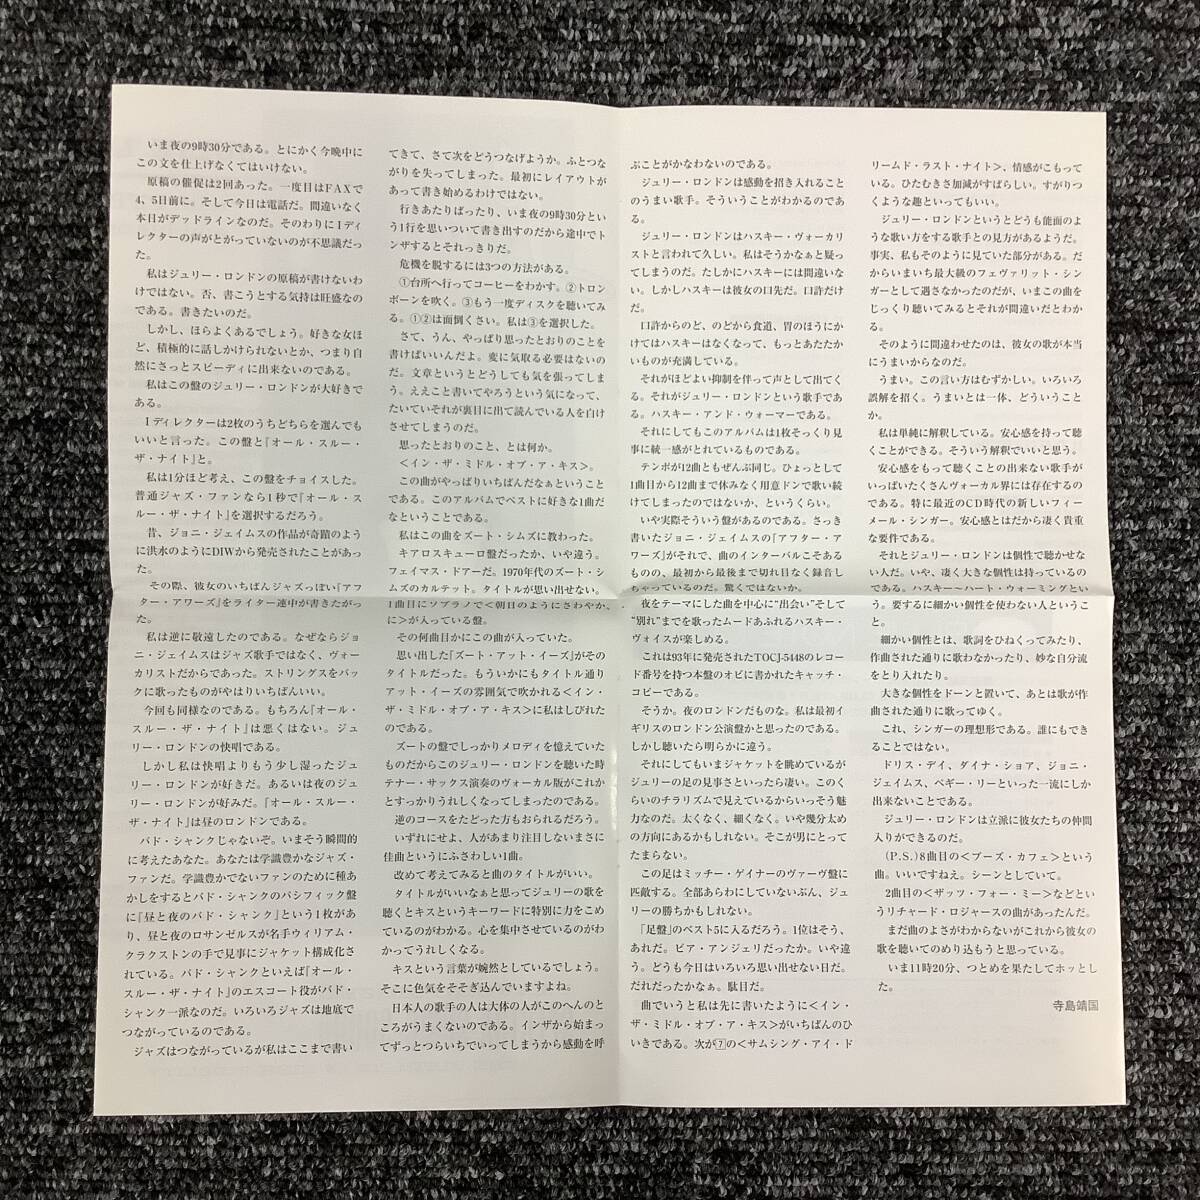 いま夜の9時30分である。とにかく今晩中に
この文を仕上げなくてはいけない。
原稿の催促は2回あった。一度目はFAXで
4、5日前に。そして今日は電話だ。間違いなく
本日がデッドラインなのだ。そのわりにIディ
レクターの声がとがっていないのが不思議だっ
た。
私はジュリー・ロンドンの原稿が書けないわ
けではない。否、書こうとする気持は旺盛なの
である。書きたいのだ。
しかし、ほらよくあるでしょう。好きな女ほ
ど、積極的に話しかけられないとか、つまり自
然にさっとスピーディに出来ないのである。
私はこの盤のジュリー・ロンドンが大好きで
ある。
Iディレクターは2枚のうちどちらを選んでも
いいと言った。この盤と『オール・スルー・
ザ・ナイト』と。
私は1分ほど考え、この盤をチョイスした。
普通ジャズ・ファンなら1秒で『オール・ス
ルー・ザ・ナイト』を選択するだろう。
昔、ジョニ・ジェイムスの作品が奇蹟のよう
に洪水のようにDIWから発売されたことがあっ
た。
その際、彼女のいちばんジャズっぽい『アフ
ター・アワーズ』をライター連中が書きたがっ
た。
私は逆に敬遠したのである。なぜならジョ
ニ・ジェイムスはジャズ歌手ではなく、ヴォー
カリストだからであった。ストリングスをバッ
クに歌ったものがやはりいちばんいい。
今回も同様なのである。もちろん『オール・
スルー・ザ・ナイト』は悪くはない。ジュ
リー・ロンドンの快唱である。
しかし私は快唱よりもう少し湿ったジュ
リー・ロンドンが好きだ。あるいは夜のジュ
リー・ロンドンが好みだ。『オール・スルー・
ザ・ナイト』は昼のロンドンである。
バド・シャンクじゃないぞ。いまそう瞬間的
に考えたあなた。あなたは学識豊かなジャズ・
ファンだ。学識豊かでないファンのために種あ
かしをするとバド・シャンクのパシフィック盤
に『昼と夜のバド・シャンク』という1枚があ
り、昼と夜のロサンゼルスが名手ウィリアム・
クラクストンの手で見事にジャケット構成化さ
れている。バド・シャンクといえば『オール・
スルー・ザ・ナイト』のエスコート役がバド・
シャンク一派なのだ。いろいろジャズは地底で
つながっているのである。
ジャズはつながっているが私はここまで書い
てきて、さて次をどうつなげようか。ふとつな
がりを失ってしまった。最初にレイアウトが
あって書き始めるわけではない。
行きあたりばったり、いま夜の9時30分とい
う1行を思いついて書き出すのだから途中でト
ンザするとそれっきりだ。
危機を脱するには3つの方法がある。
①台所へ行ってコーヒーをわかす。②トロン
ボーンを吹く。③もう一度ディスクを聴いてみ
る。①②は面倒くさい。私は③を選択した。
さて、うん、やっぱり思ったとおりのことを
書けばいいんだよ。変に気取る必要はないの
だ。文章というとどうしても気を張ってしま
う。ええこと書いてやろうという気になって、
たいていそれが裏目に出て読んでいる人を白け
させてしまうのだ。
思ったとおりのこと、とは何か。
＜イン・ザ・ミドル・オブ・ア・キス＞。
この曲がやっぱりいちばんだなぁということ
である。このアルバムでベストに好きな1曲だ
なということである。
私はこの曲をズート・シムズに教わった。
キアロスキューロ盤だったか、いや違う。
フェイマス・ドアーだ。1970年代のズート・シ
ムズのカルテット。タイトルが思い出せない。
1曲目にソプラノで＜朝日のようにさわやか
に＞が入っている盤。
その何曲目かにこの曲が入っていた。
思い出した『ズート・アット・イーズ』がその
タイトルだった。もういかにもタイトル通り
アット・イーズの雰囲気で吹かれる＜イン・
ザ・ミドル・オブ・ア・キス＞に私はしびれた
のである。
ズートの盤でしっかりメロディを憶えていた
ものだからこのジュリー・ロンドンを聴いた時
テナー・サックス演奏のヴォーカル版がこれか
とすっかりうれしくなってしまったのである。
逆のコースをたどった方もおられるだろう。
いずれにせよ、人があまり注目しないまさに
佳曲というにふさわしい1曲。
改めて考えてみると曲のタイトルがいい。
タイトルがいいなぁと思ってジュリーの歌を
聴くとキスというキーワードに特別に力をこめ
ているのがわかる。心を集中させているのがわ
かってうれしくなる。
キスという言葉が婉然としているでしょう。
そこに色気をそそぎ込んでいますよね。
日本人の歌手の人は大体の人がこのへんのと
ころがうまくないのである。インザから始まっ
てずっとつらいちでいってしまうから感動を呼
ぶことがかなわないのである。
ジュリー・ロンドンは感動を招き入れること
のうまい歌手。そういうことがわかるのであ
る。
ジュリー・ロンドンはハスキー・ヴォーカリ
ストと言われて久しい。私はそうかなぁと疑っ
てしまうのだ。たしかにハスキーには間違いな
い。しかしハスキーは彼女の口先だ。口許だけ
だ。
口許からのど、のどから食道、胃のほうにか
けてはハスキーはなくなって、もっとあたたか
いものが充満している。
それがほどよい抑制を伴って声として出てく
る。それがジュリー・ロンドンという歌手であ
る。ハスキー・アンド・ウォーマーである。
それにしてもこのアルバムは1枚そっくり見
事に統一感がとれているものである。
テンポが12曲ともぜんぶ同じ。ひょっとして
1曲目から12曲まで休みなく用意ドンで歌い続
けてしまったのではないか、というくらい。
いや実際そういう盤があるのである。さっき
書いたジョニ・ジェイムスの『アフター・ア
ワーズ』がそれで、曲のインターバルこそある
ものの、最初から最後まで切れ目なく録音し
ちゃっているのだ。驚くではないか。
夜をテーマにした曲を中心に“出会い”そして
“別れ”までを歌ったムードあふれるハスキー・
ヴォイスが楽しめる。
これは93年に発売されたTOCJ-5448のレコー
ド番号を持つ本盤のオビに書かれたキャッチ・
コピーである。
そうか。夜のロンドンだものな。私は最初イ
ギリスのロンドン公演盤かと思ったのである。
しかし聴いたら明らかに違う。
それにしてもいまジャケットを眺めているが
ジュリーの足の見事さといったら凄い。このく
らいのチラリズムで見えているからいっそう魅
力なのだ。太くなく、細くなく。いや幾分太め
の方向にあるかもしれない。そこが男にとって
たまらない。
この足はミッチー・ゲイナーのヴァーヴ盤に
匹敵する。全部あらわにしていないぶん、ジュ
リーの勝ちかもしれない。
「足盤」のベスト5に入るだろう。1位はそう、
あれだ。ピア・アンジェリだったか。いや違
う。どうも今日はいろいろ思い出せない日だ。
だれだったかなぁ。駄目だ。
曲でいうと私は先に書いたように＜イン・
ザ・ミドル・オブ・ア・キス＞がいちばんのひ
いきである。次が7の＜サムシング・アイ・ド
リームド・ラスト・ナイト＞、情感がこもって
いる。ひたむきさ加減がすばらしい。すがりつ
くような趣といってもいい。
ジュリー・ロンドンというとどうも能面のよ
うな歌い方をする歌手との見方があるようだ。
事実、私もそのように見ていた部分がある。だ
からいまいち最大級のフェヴァリット・シン
ガーとして遇さなかったのだが、いまこの曲を
じっくり聴いてみるとそれが間違いだとわか
る。
そのように間違わせたのは、彼女の歌が本当
にうまいからなのだ。
うまい。この言い方はむずかしい。いろいろ
誤解を招く。うまいとは一体、どういうこと
か。
私は単純に解釈している。安心感を持って聴
くことができる。そういう解釈でいいと思う。
安心感をもって聴くことの出来ない歌手が
いっぱいたくさんヴォーカル界には存在するの
である。特に最近のCD時代の新しいフィー
メール・シンガー。安心感とはだから凄く貴重
な要件である。
それとジュリー・ロンドンは個性で聴かせな
い人だ。いや、凄く大きな個性は持っているの
である。ハスキー〜ハート・ウォーミングとい
う。要するに細かい個性を使わない人というこ
と。
細かい個性とは、歌詞をひねくってみたり、
作曲された通りに歌わなかったり、妙な自分流
をとり入れたり。
大きな個性をドーンと置いて、あとは歌が作
曲された通りに歌ってゆく。
これ、シンガーの理想形である。誰にもでき
ることではない。
ドリス・デイ、ダイナ・ショア、ジョニ・
ジェイムス、ペギー・リーといった一流にしか
出来ないことである。
ジュリー・ロンドンは立派に彼女たちの仲間
入りができるのだ。
(P.S.)8曲目の＜ブーズ・カフェ＞という
曲。いいですねえ。シーンとしていて。
2曲目の＜ザッツ・フォー・ミー＞などとい
うリチャード・ロジャースの曲があったんだ。
まだ曲のよさがわからないがこれから彼女の
歌を聴いてのめり込もうと思っている。
いま11時20分、つとめを果たしてホッとし
た。
寺島靖国